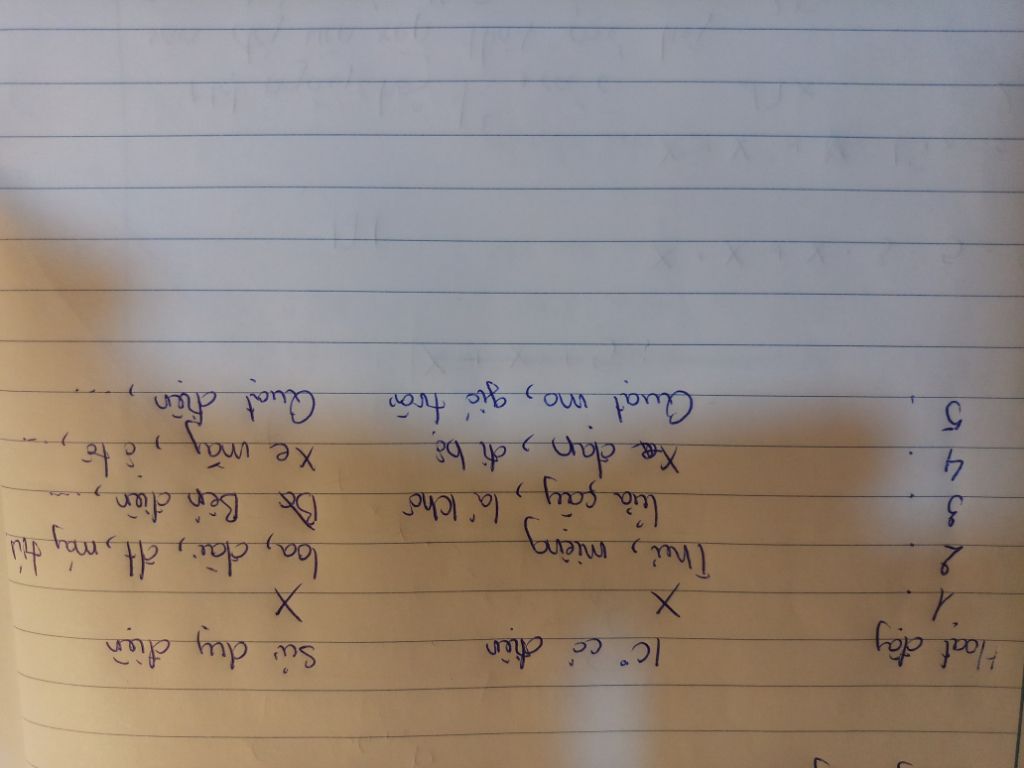 Hoạt độg K° có điện Sử dụg điện
1. X X
2. Thư, miệng loa, đài, đt, máy
3. lá khô Bếp điện, ....
4. Xe đạp, đi bộ Xe máy, ô tô, ....
5. Quạt mo, gió trời Quạt điện, ....